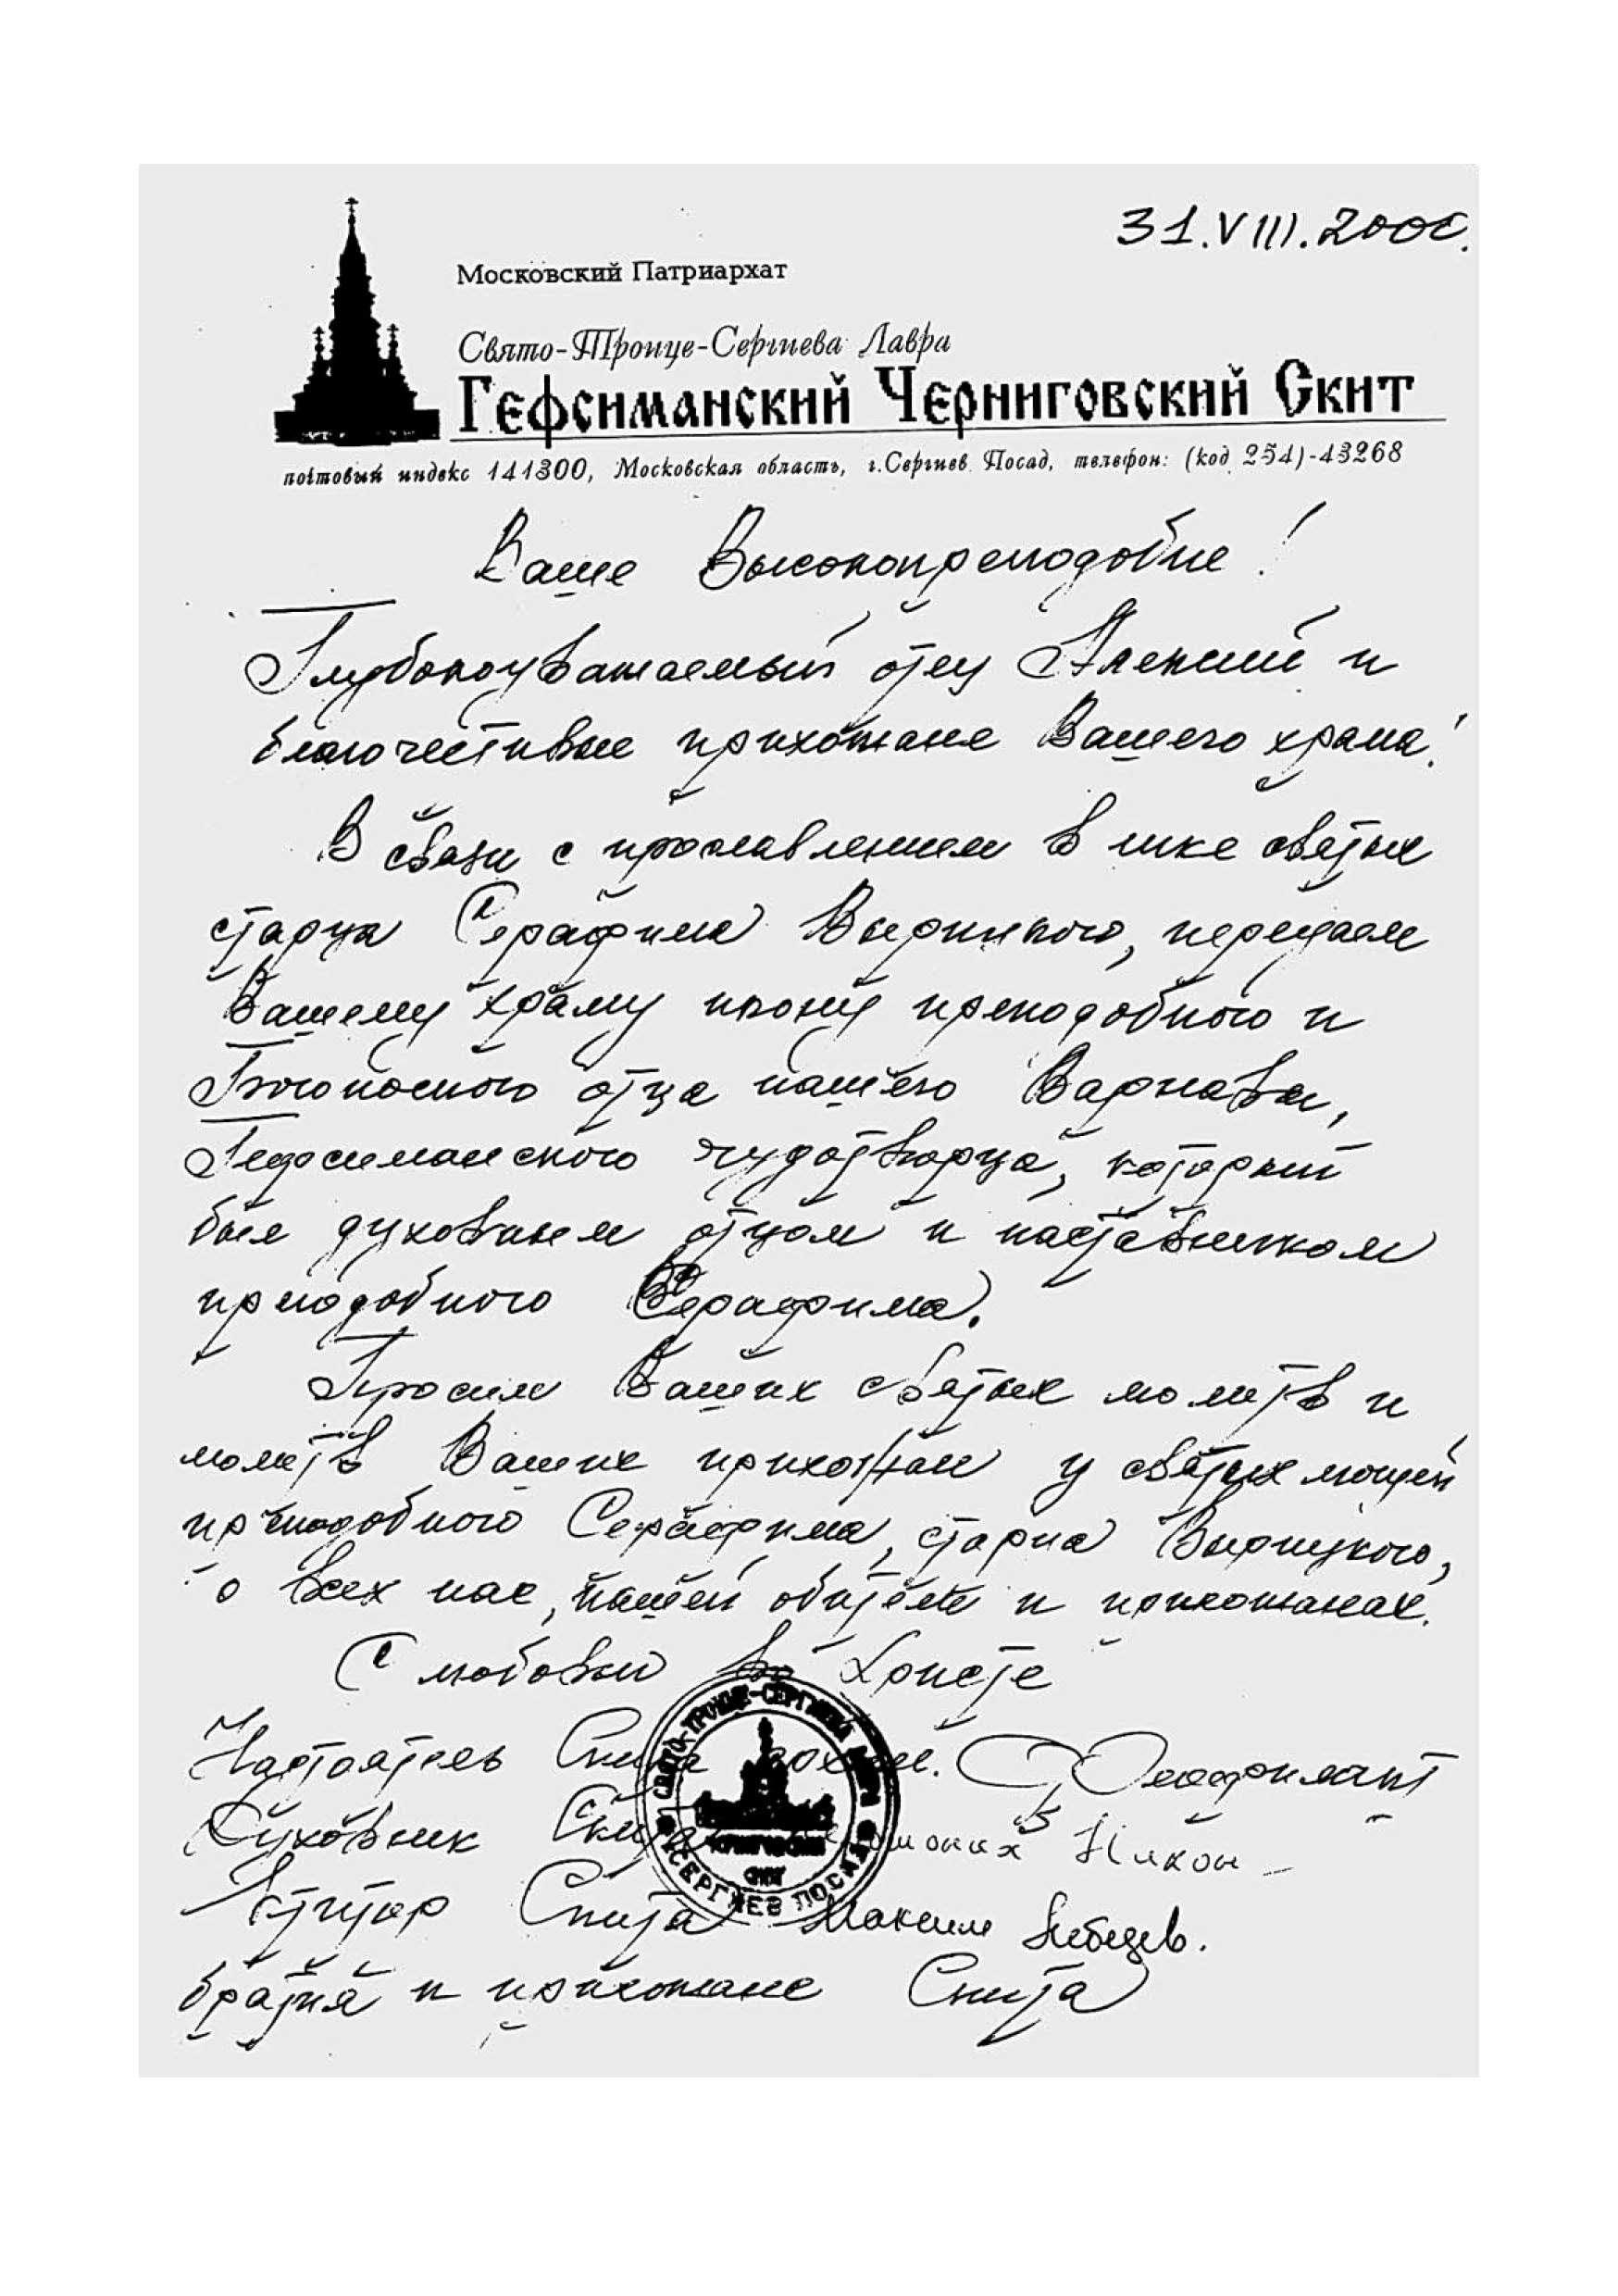 31.VIII.2000.
Московский Патриархат
Свято-Троице-Сергиева Лавра
Гефсиманский Черниговский Скит
почтовый индекс 141300, Московская область, г.Сергиев Посад, телефон: (код 254)-43268
Ваше Высокопреподобие!
Глубокоуважаемый отец Алексий и
благочестивые прихожане Вашего храма!
В связи с прославлением в лике святых
старца Серафима Вырицкого, передаем
Вашему храму икону преподобного и
Богоносного отца нашего Варнавы,
Гефсиманского чудотворца, который
был духовным отцом и наставником
преподобного Серафима.
Просим Ваших святых молитв и
молитв Ваших прихожан у святых мощей
преподобного Серафима, старца Вырицкого,
о всех нас, нашей обители и прихожанах.
С любовью во Христе
Настоятель Скита архим. Феофилакт
Духовник Скита иеромонах Никон
Ктитор Скита Максим Лебедев.
братия и прихожане Скита
СВЯТО-ТРОИЦЕ-СЕРГИЕВА ЛАВРА
ЧЕРНИГОВСКИЙ
СКИТ
СЕРГИЕВ ПОСАД